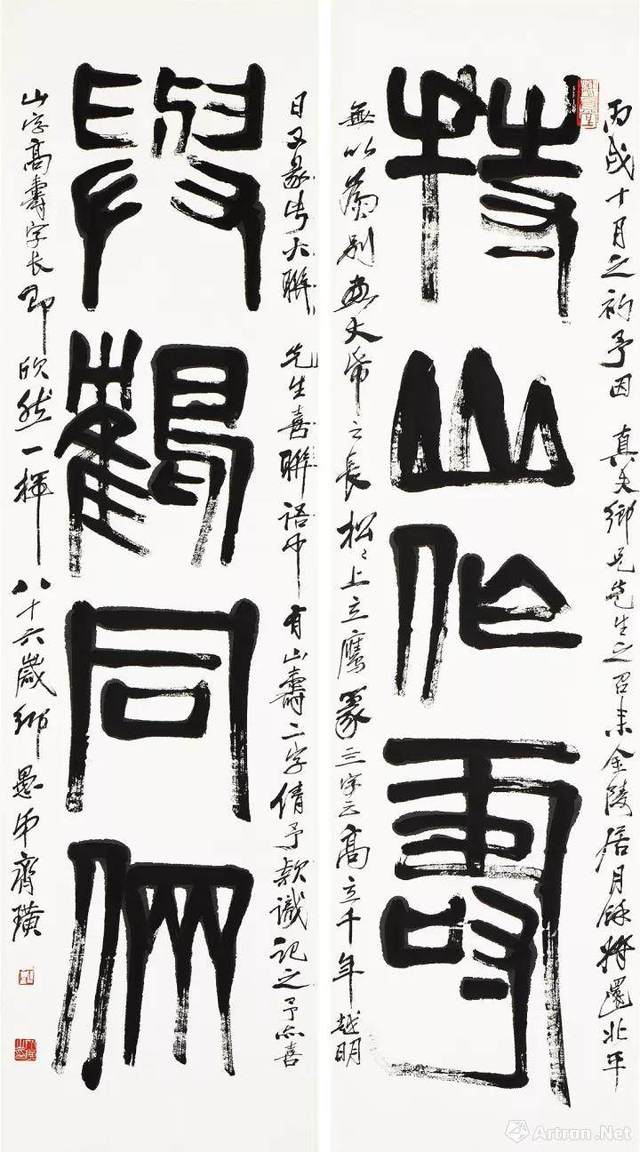 持山作壽
丙戌十月之初予因 真夫鄉兄先生之召来金陵居月餘將還北平
無以為別畫大幅之長松〻上立鷹篆三字云高立千年越明
與鶴同倆
日又篆此大聯 先生喜聯語中有山壽二字倩予款識記之予亦喜
山字高壽字长即欣然一揮 八十六歲鄉愚弟齊璜
Artron.Net